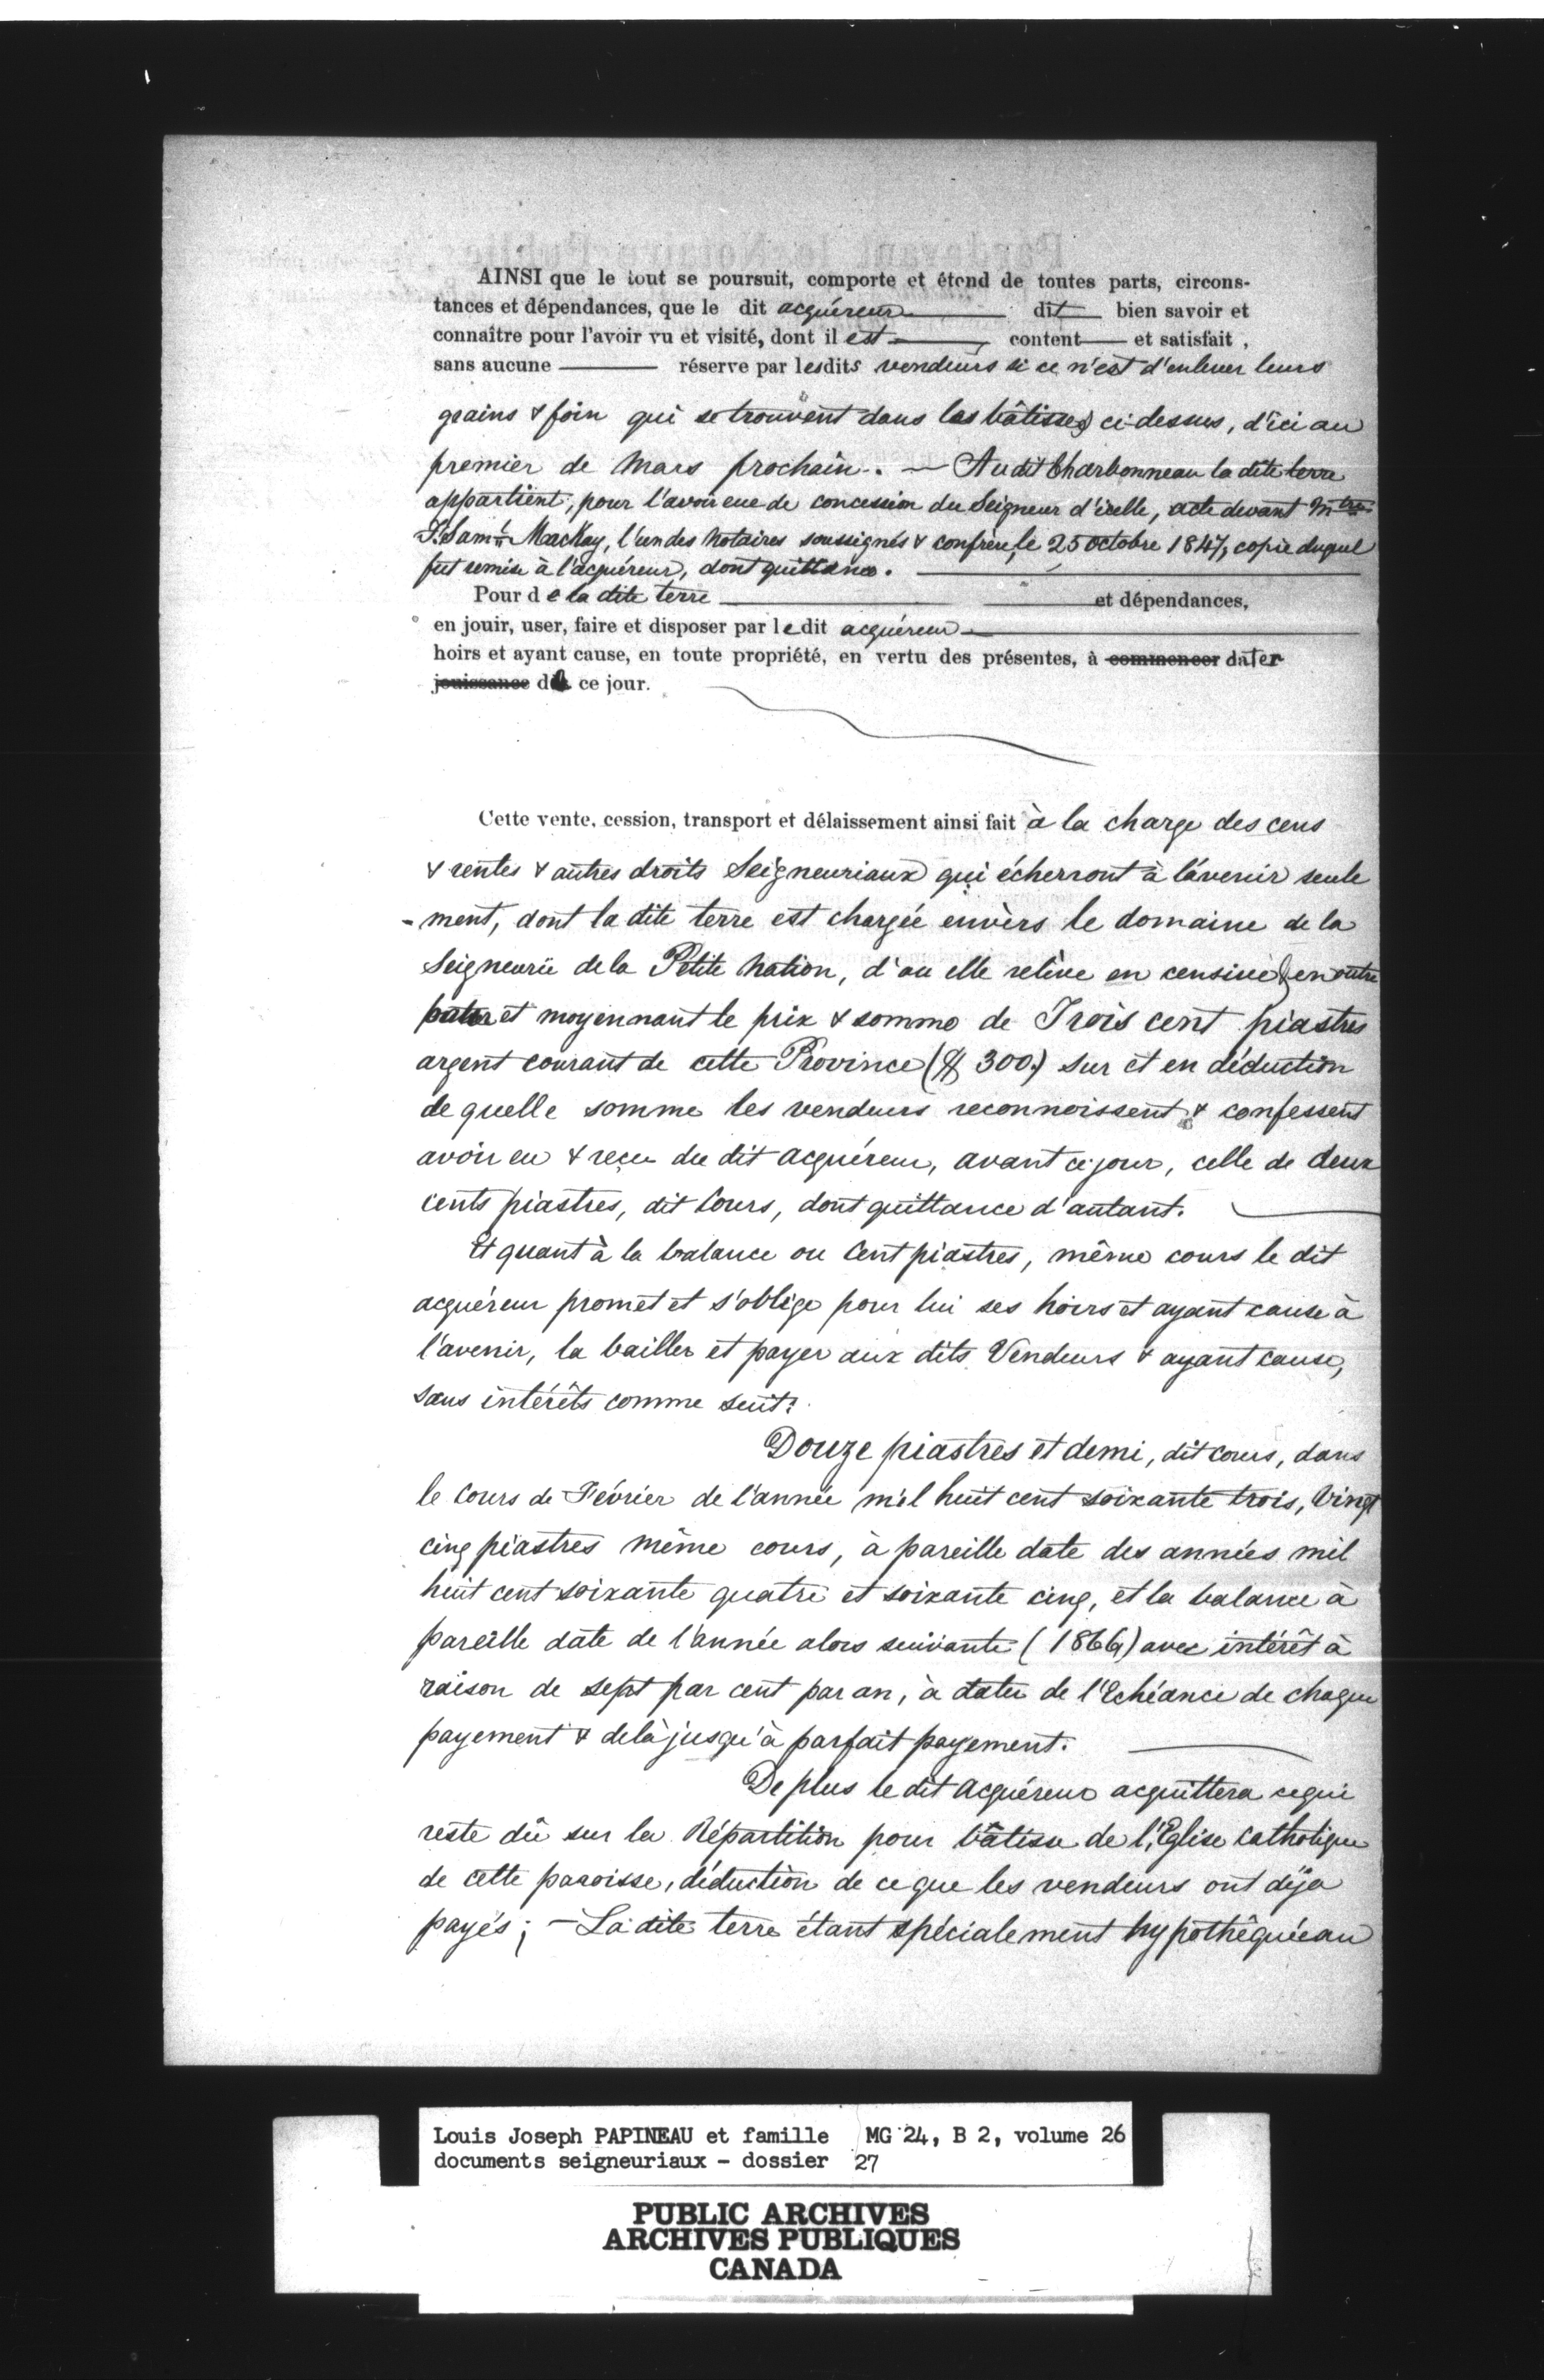 AINSI que le tout se poursuit, comporte et étend de toutes parts, circons-
tances et dépendances, que le dit acquéreur dit bien savoir et
connaître pour l'avoir vu et visité, dont il est content et satisfait,
sans aucune réserve par lesdits vendeurs si ce n'est d'enlever leurs
grains & foin qui se trouvent dans les bâtisses ci-dessus, d'ici au
premier de Mars prochain. — Au dit Charbonneau la dite terre
appartient, pour l'avoir eue de concession du Seigneur d'icelle, acte devant Mtre
F. Saml MacKay, l'un des Notaires soussignés & confrère, le 25 octobre 1847, copie duquel
fut remise à l'acquéreur, dont quittance.
Pour de la dite terre et dépendances,
en jouir, user, faire et disposer par ledit acquéreur
hoirs et ayant cause, en toute propriété, en vertu des présentes, à commencer dater
jouissance de ce jour.
Cette vente, cession, transport et délaissement ainsi fait à la charge des cens
& rentes & autres droits Seigneuriaux qui écherront à l'avenir seule
-ment, dont la dite terre est chargée envèrs le domaine de la
Seigneurie de la Petite Nation, d'ou elle relève en censive & en outre
et moyennant le prix & somme de Trois cent piastres
argent courant de cette Province ($ 300.) sur et en déduction
de quelle somme les vendeurs reconnoissent & confessent
avoir eu & reçu du dit acquéreur, avant ce jour, celle de deux
cents piastres, dit Cours, dont quittance d'autant.
Et quant à la balance ou Cent piastres, même cours le dit
acquéreur promet et s'oblige pour lui ses hoirs et ayant cause à
l'avenir, la bailler et payer aux dits Vendeurs & ayant cause,
sans intérêts comme suit:
Douze piastres et demi, dit cours, dans
le Cours de Février de l'année mil huit cent soixante trois, Vingt
cinq piastres même cours, à pareille date des années mil
huit cent soixante quatre et soixante cinq, et la balance à
pareille date de l'année alors suivante (1866) avec intérêt à
raison de sept par cent par an, à dater de l'Echéance de chaque
payement & delà jusqu'à parfait payement.
De plus le dit Acquéreur acquittera ce qui
reste dû sur la Répartition pour bâtisse de l'Eglise Catholique
de cette paroisse, déduction de ce que les vendeurs ont déja
payés; — La dite terre étant spécialement hypothêquée au
Louis Joseph PAPINEAU et famille MG 24, B 2, volume 26
documents seigneuriaux - dossier 27
PUBLIC ARCHIVES
ARCHIVES PUBLIQUES
CANADA